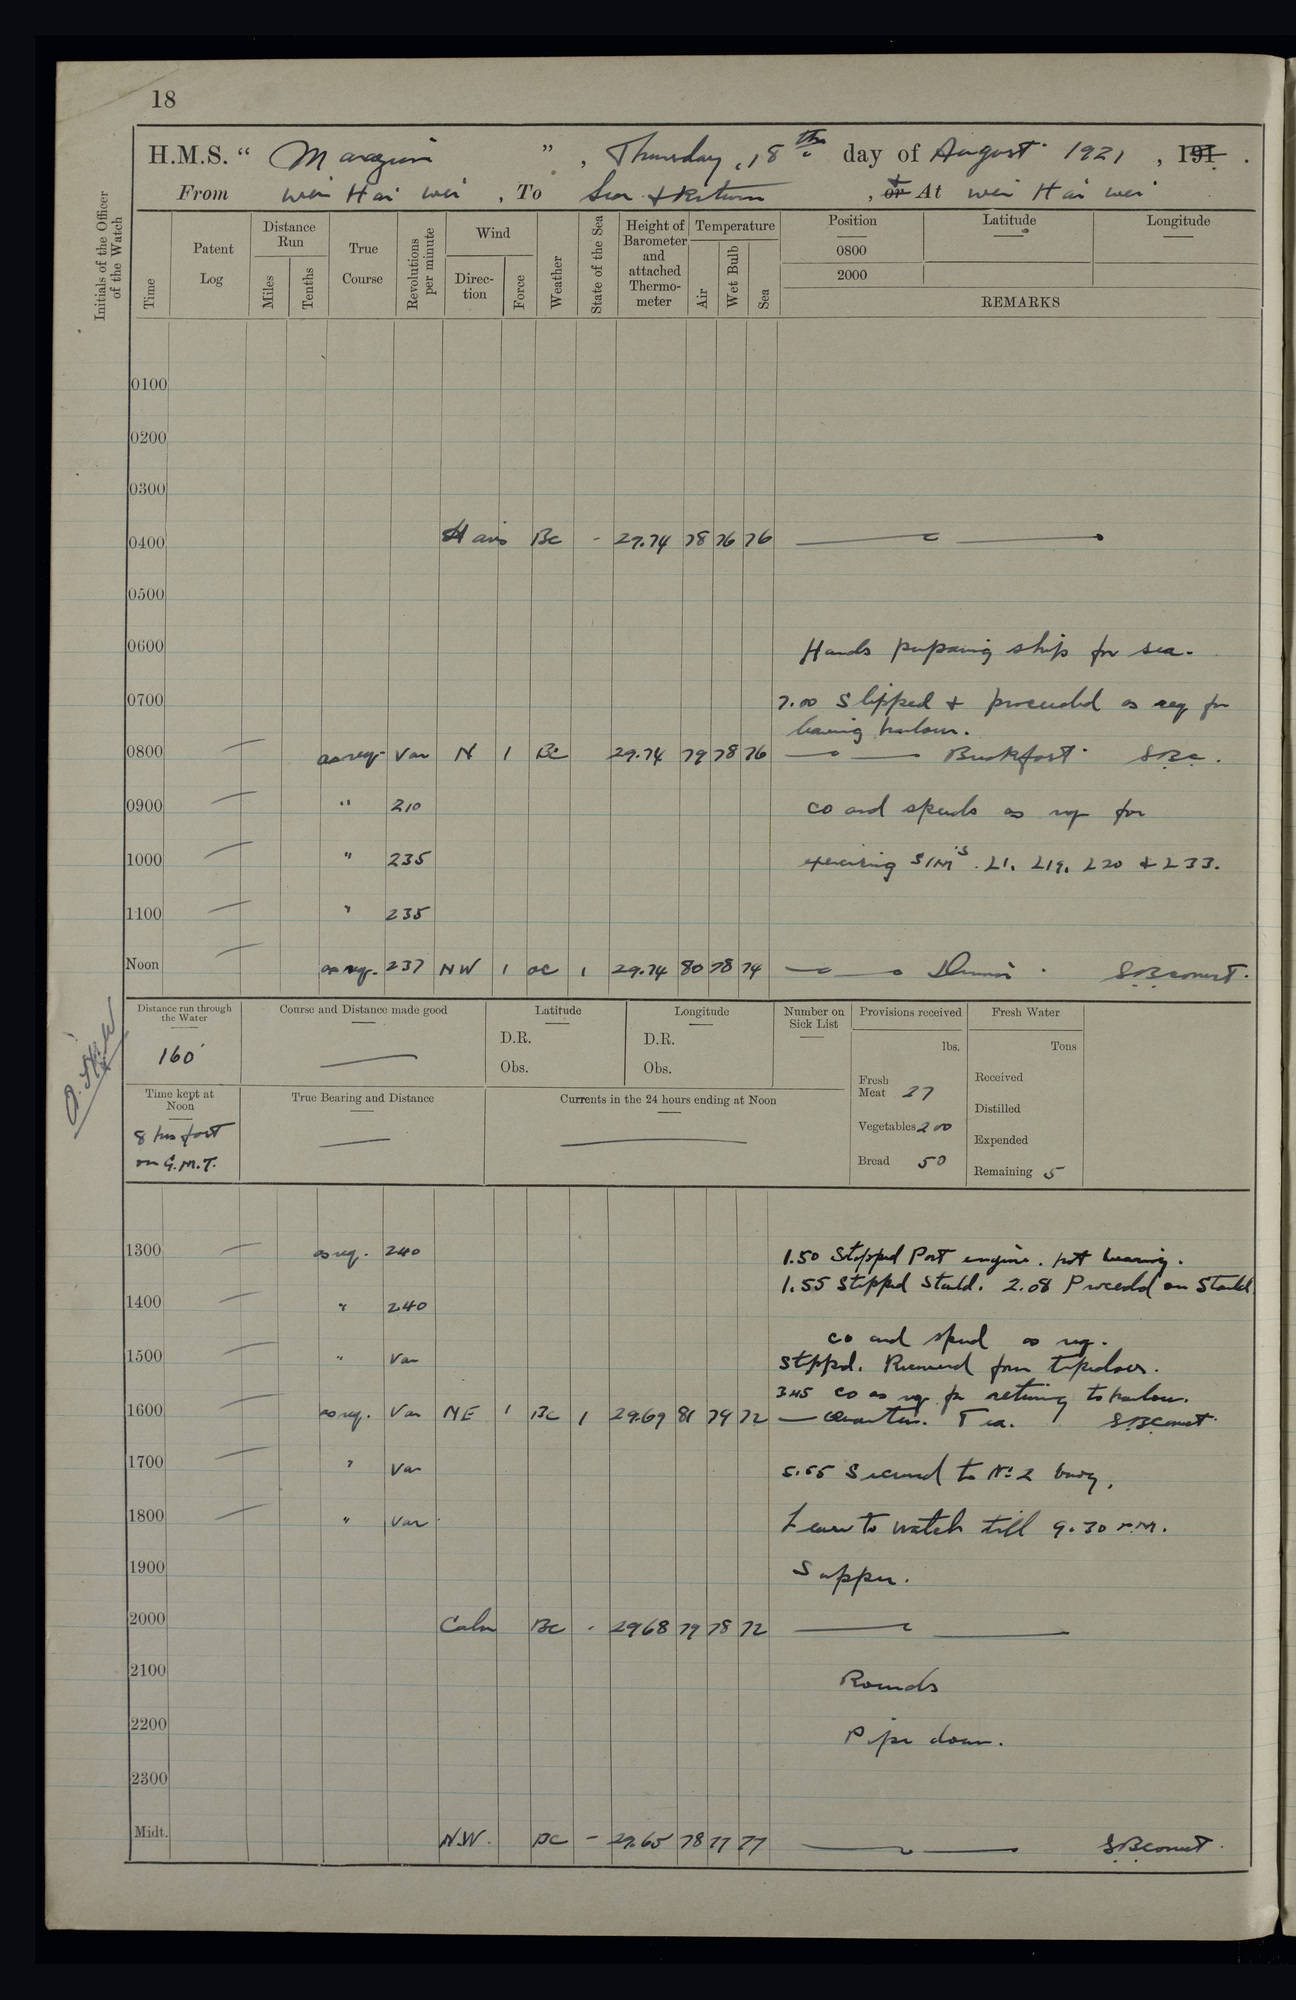 18
H.M.S. " Marazion ", Thursday, 18th day of August 1921, 191.
From Wei Hai Wei, To Sea & Return, or & At Wei Hai Wei
Initials of the Officer of the Watch
Time
Patent Log
Distance Run
Miles
Tenths
True Course
Revolutions per minute
Wind
Direction
Force
Weather
State of the Sea
Height of Barometer and attached Thermometer
Temperature
Air
Wet Bulb
Sea
Position Latitude Longitude
0800
2000
REMARKS
0100
0200
0300
0400 BC - 29.74 78 76 76
0500
0600 Hands preparing ship for sea.
0700 7.00 Slipped & proceeded as req for
leaving harbour.
0800 as req. Var N 1 BC 29.74 79 78 76 Breakfast. S.B.C.
0900 " 210 co and speeds as req for
1000 " 235 exercising S/M's. L1. L19. L20 & L33.
1100 " 235
Noon as req. 237 NW 1 OC 1 29.74 80 78 74 Dinner. S.B.
Distance run through the Water
160
Course and Distance made good
Latitude
D.R.
Obs.
Longitude
D.R.
Obs.
Number on Sick List
Provisions received
lbs.
Fresh Meat 27
Vegetables 200
Bread 50
Fresh Water
Tons
Received
Distilled
Expended
Remaining 5
Time kept at Noon
8 hrs fast
on G.M.T.
True Bearing and Distance
Currents in the 24 hours ending at Noon
1300 as req. 240 1.50 Stopped Port engine. hot bearing.
1.55 Stopped Starbd. 2.08 Proceeded on Starbd
1400 " 240
co and speed as req.
1500 " Var Stopped. Recovered torpedoes.
3.45 co as req for returning to harbour.
1600 as req. Var NE 1 BC 1 29.69 81 79 72 Quarters. Tea. S.B.
1700 " Var 5.55 Secured to No 2 buoy.
1800 " Var Leave to watch till 9.30 P.M.
1900 Supper.
2000 Calm BC - 29.68 79 78 72
2100 Rounds
2200 Pipe down.
2300
Midt. N.W. BC - 29.65 78 77 77 S.B.